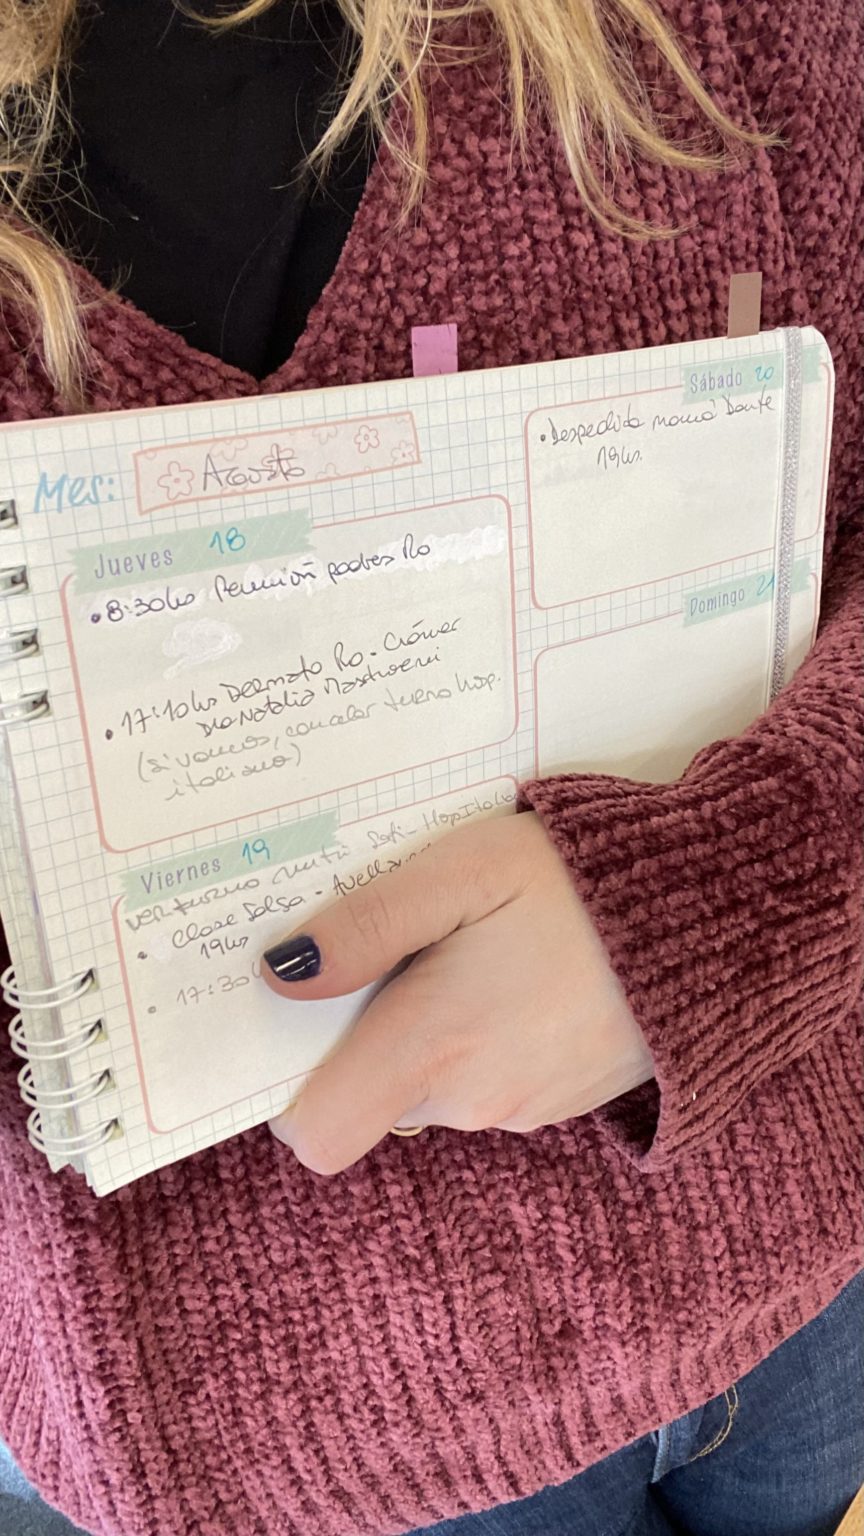 Mes: Agosto
Jueves 18
• 8:30hs Reunión padres Ro
• 17:10hs Dermato Ro - Crámer
Dra Natalia Mastroeni
(si vamos, cancelar turno hosp.
italiano)
Viernes 19
ver turno nutri Sofi - Hosp Italia
• Clase Salsa - Avella
19hs
• 17:30
Sábado 20
• Despedida mamá Dante
19hs.
Domingo 21